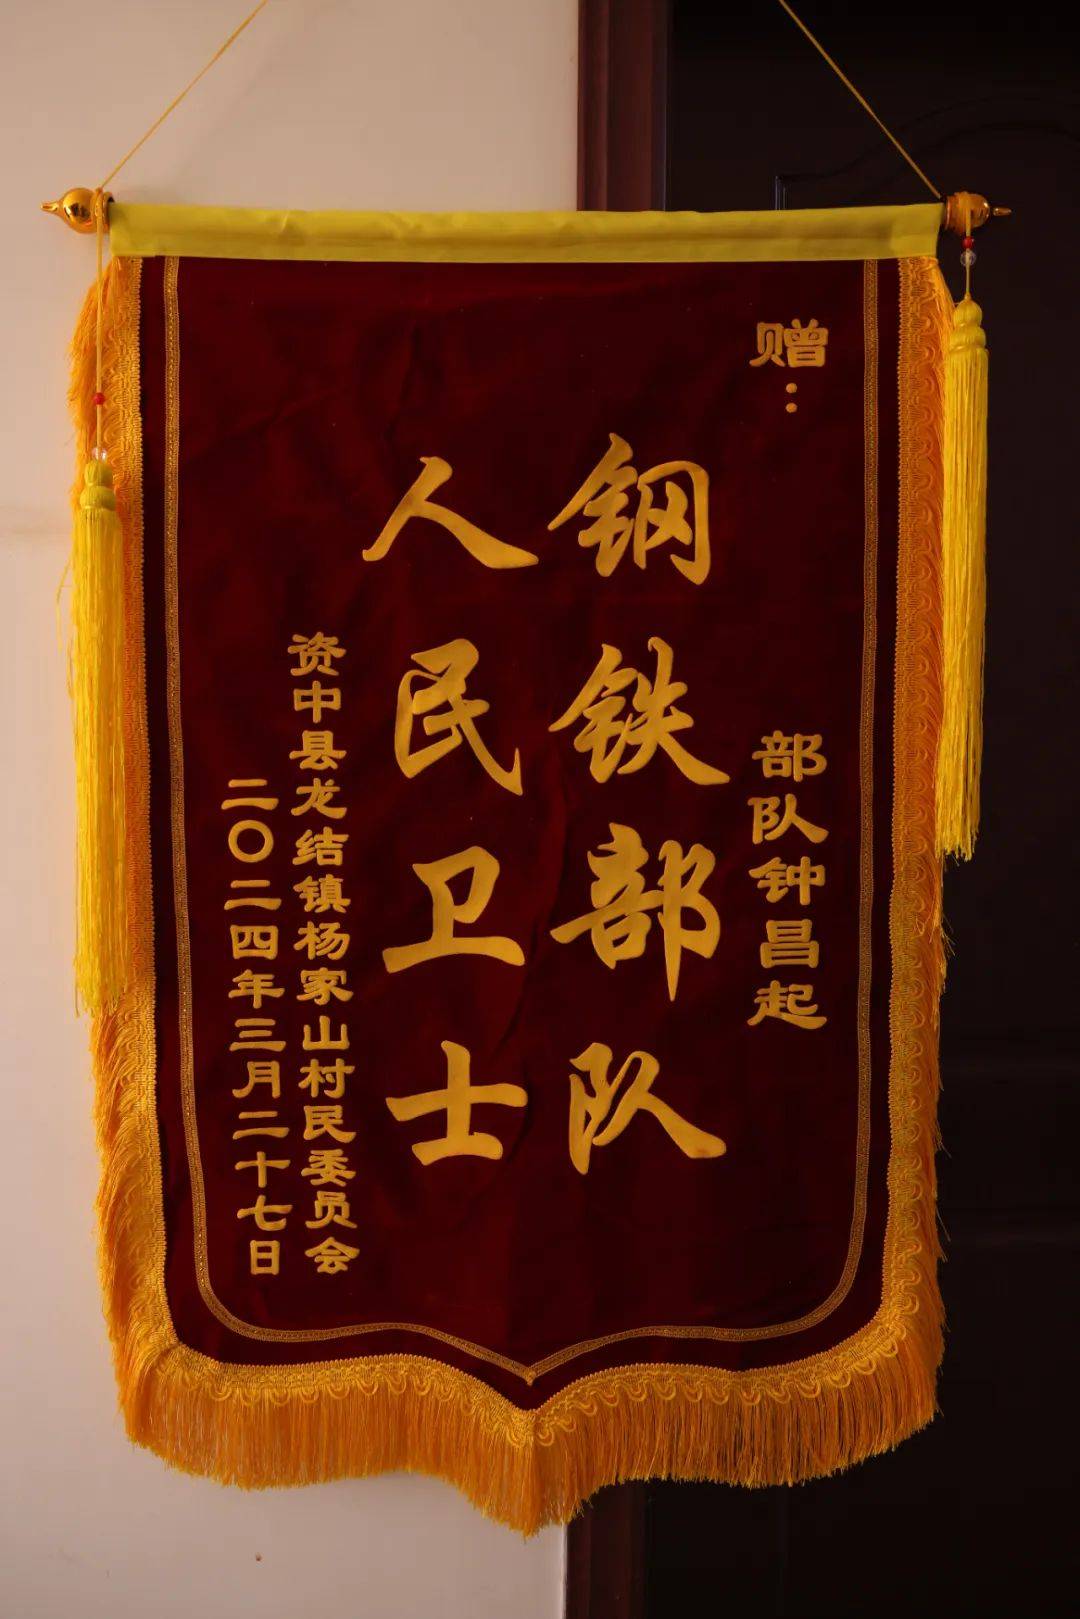 赠：
部队钟昌起
钢铁部队
人民卫士
资中县龙结镇杨家山村民委员会
二〇二四年三月二十七日